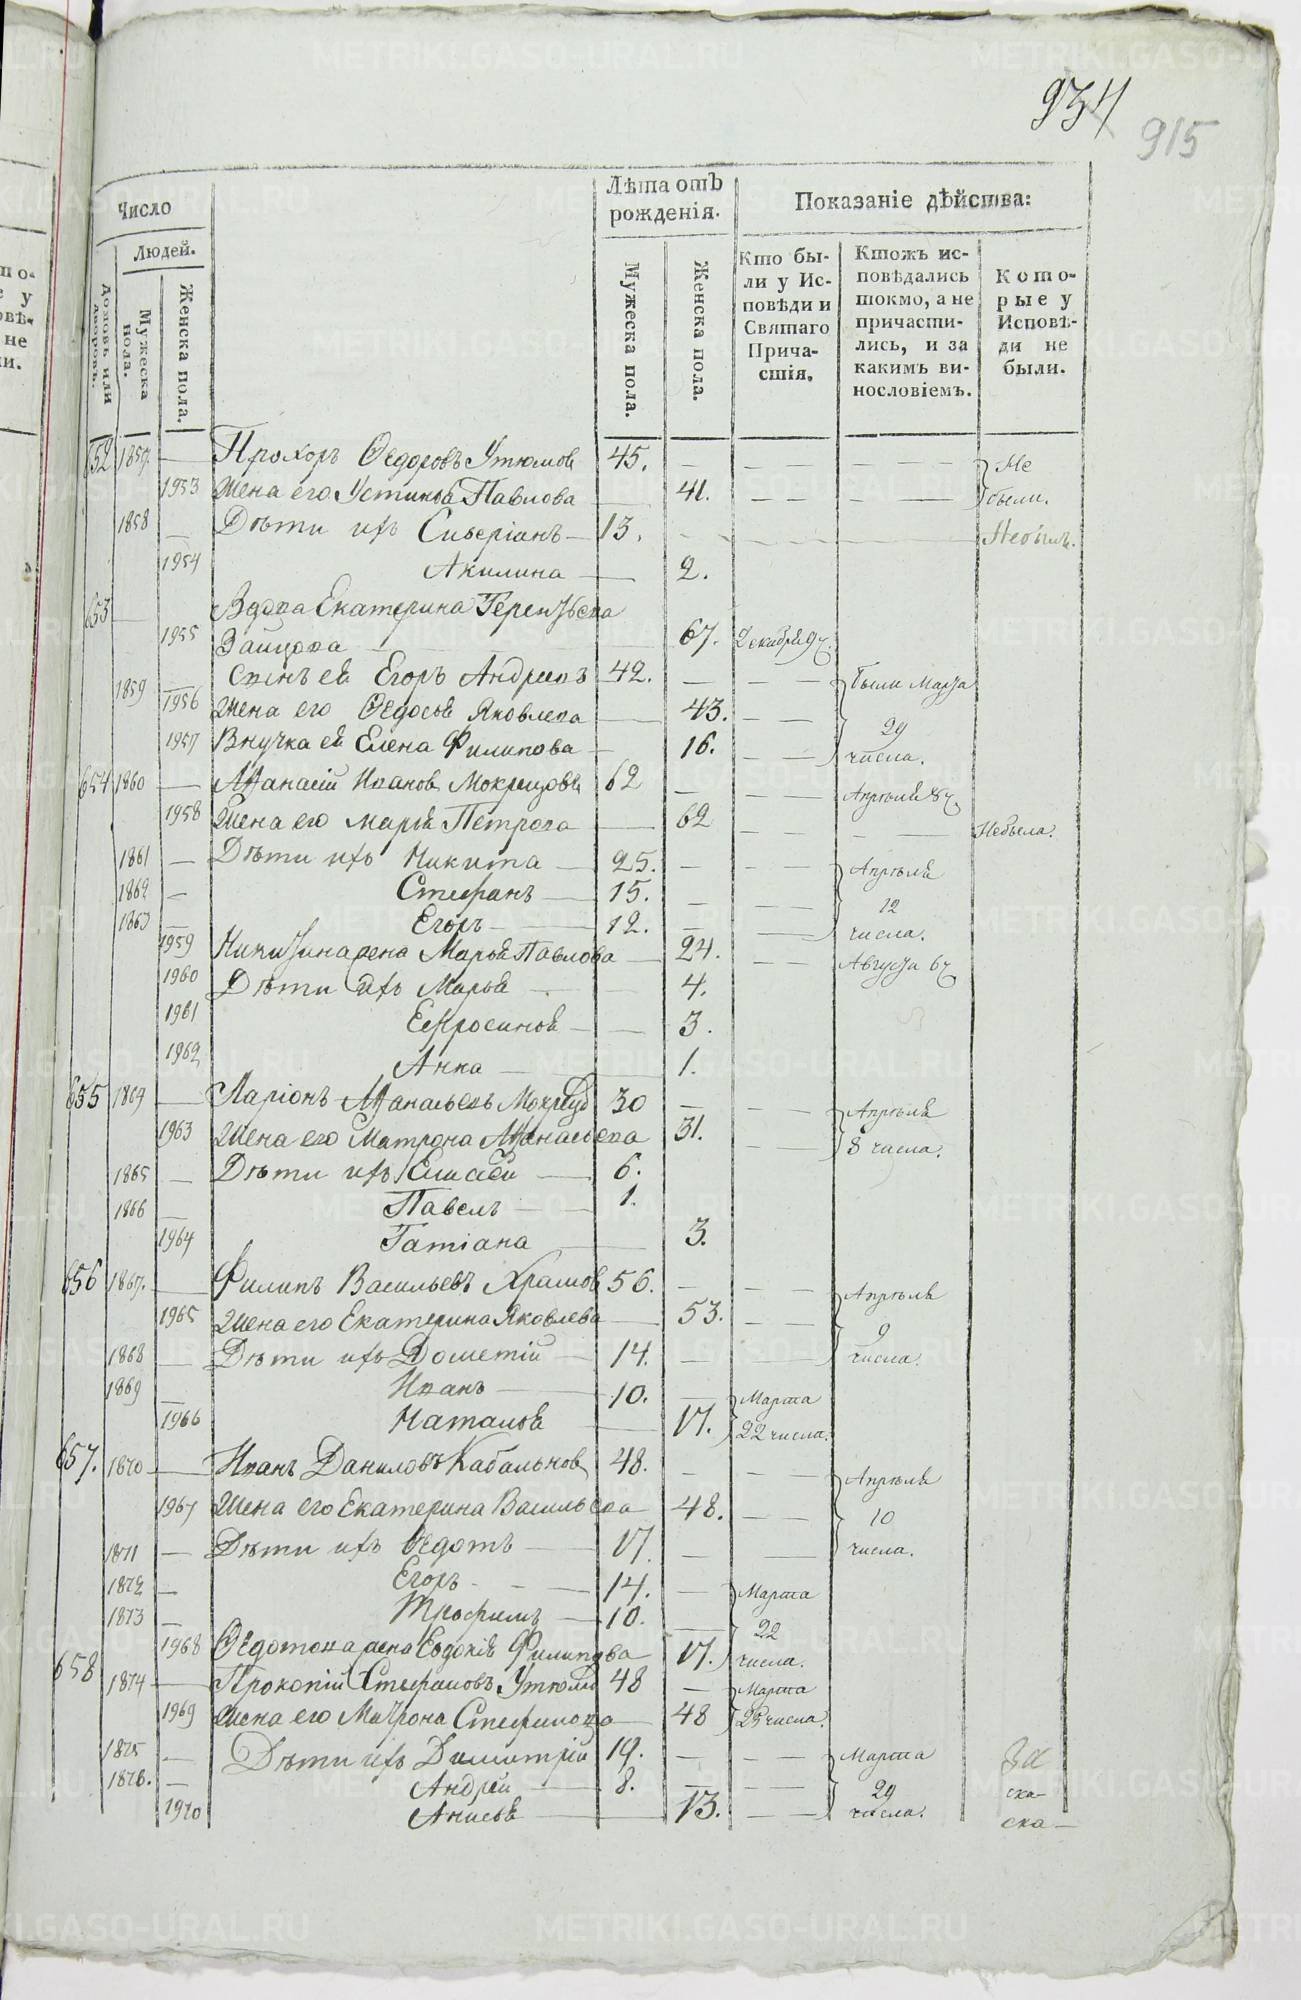 METRIKI.GASO-URAL.RU
934
915
Число
Людей.
Домовъ или дворовъ.
Мужеска пола.
Женска пола.
Лѣта отъ
рожденія.
Мужеска пола.
Женска пола.
Показаніе дѣйства:
Кто бы-
ли у Ис-
повѣди и
Святаго
Прича-
стія.
Ктожъ ис-
повѣдались
токмо, а не
причасти-
лись, и за
какимъ ви-
нословіемъ.
Кото-
рые у
Исповѣ-
ди не
были.
652 1857. — Прохоръ Ѳедоровъ Утюмов 45. — Не
1953 Жена его Устинья Павлова — 41. — были.
1858 — Дѣти ихъ Сиверіанъ — 13. — Небылъ.
1954 Акилина — 2.
653 — Вдова Екатерина Терентьева
1955 Зайцова — 67. Декабря 9 ч.
1859 — Сынъ ея Егоръ Андреевъ 42. — были Марта
1956 Жена его Ѳедосья Яковлева — 43. — 29
1957 Внучка ея Елена Филипова — 16. — числа.
654 1860 — Афанасій Иванов Мокрецовъ 62 — Апрѣля 8 ч.
1958 Жена его Марья Петрова — 62 — Небыла.
1861 — Дѣти ихъ Никита — 25. — Апрѣля
1862 — Стефанъ — 15. — 12
1863 — Егоръ — 12. — числа.
1959 Никитина жена Марья Павлова — 24. — Августа 6 ч.
1960 Дѣти ихъ Марья — 4.
1961 Ефросинья — 3.
1962 Анна — 1.
655 1864 — Ларіонъ Афанасьевъ Мокрецо 30 — Апрѣля
1963 Жена его Матрона Афанасьева 31. — 8 числа.
1865 — Дѣти ихъ Елисей — 6.
1866 — Павелъ — 1.
1964 Татіана — 3.
656 1867. — Филипъ Васильевъ Храмов 56. — Апрѣля
1965 Жена его Екатерина Яковлева — 53. — 9
1868 — Дѣти ихъ Дометій — 14. — числа.
1869 — Иванъ — 10. — Марта
1966 Наталья — 17. 22 числа.
657. 1870 — Иванъ Даниловъ Кабальнов 48. — Апрѣля
1967 Жена его Екатерина Васильева 48. — 10
1871 — Дѣти ихъ Ѳедотъ — 17. — числа.
1872 — Егоръ — 14. — Марта
1873 — Трофимъ — 10. — 22
1968 Ѳедотова жена Евдокія Филипова 17. числа.
658 1874 — Прокопій Стефановъ Утюмо 48 — Марта
1969 Жена его Матрона Стефанова — 48 25 числа.
1875 — Дѣти ихъ Димитрій 19. — Марта
1876. — Андрей — 8. — 29
1970 Анисья — 13. — числа.